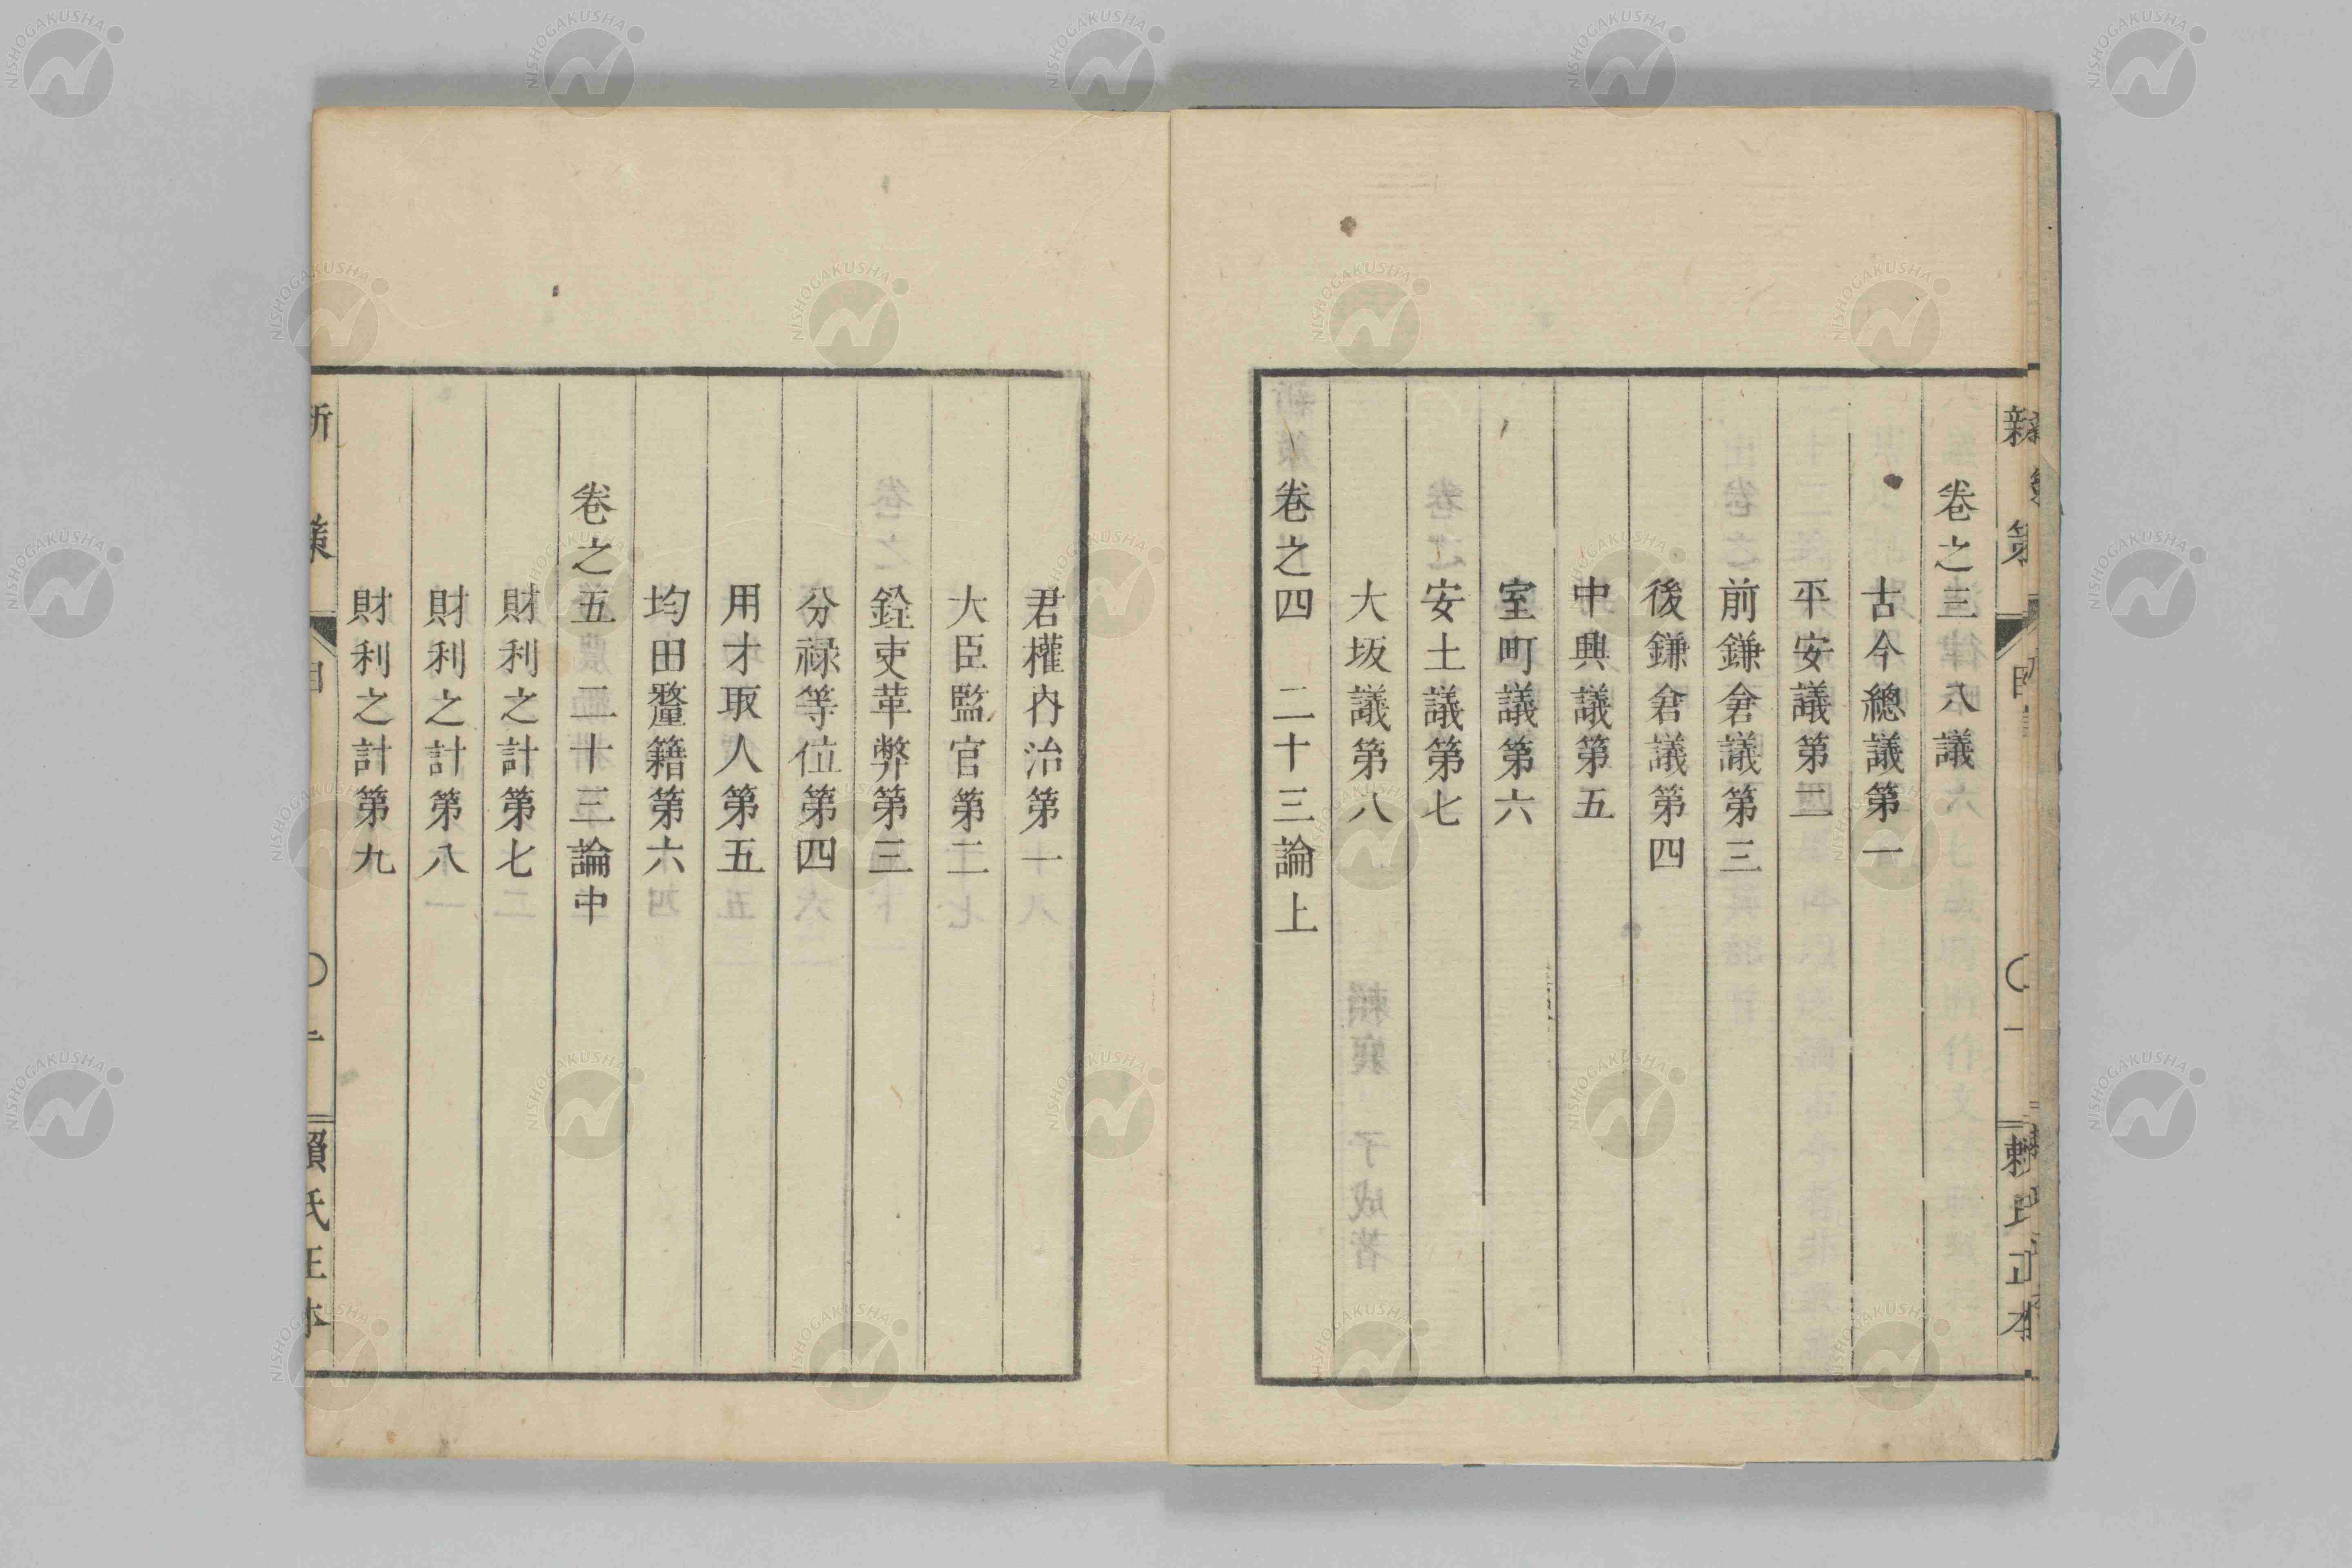 卷之三 八議
古今總議第一
平安議第二
前鎌倉議第三
後鎌倉議第四
中興議第五
室町議第六
安土議第七
大坂議第八
卷之四 二十三論上
君權內治第一
大臣監官第二
銓吏革弊第三
分祿等位第四
用才取人第五
均田釐籍第六
卷之五 二十三論中
財利之計第七
財利之計第八
財利之計第九
新策
賴氏正本
NISHOGAKUSHA